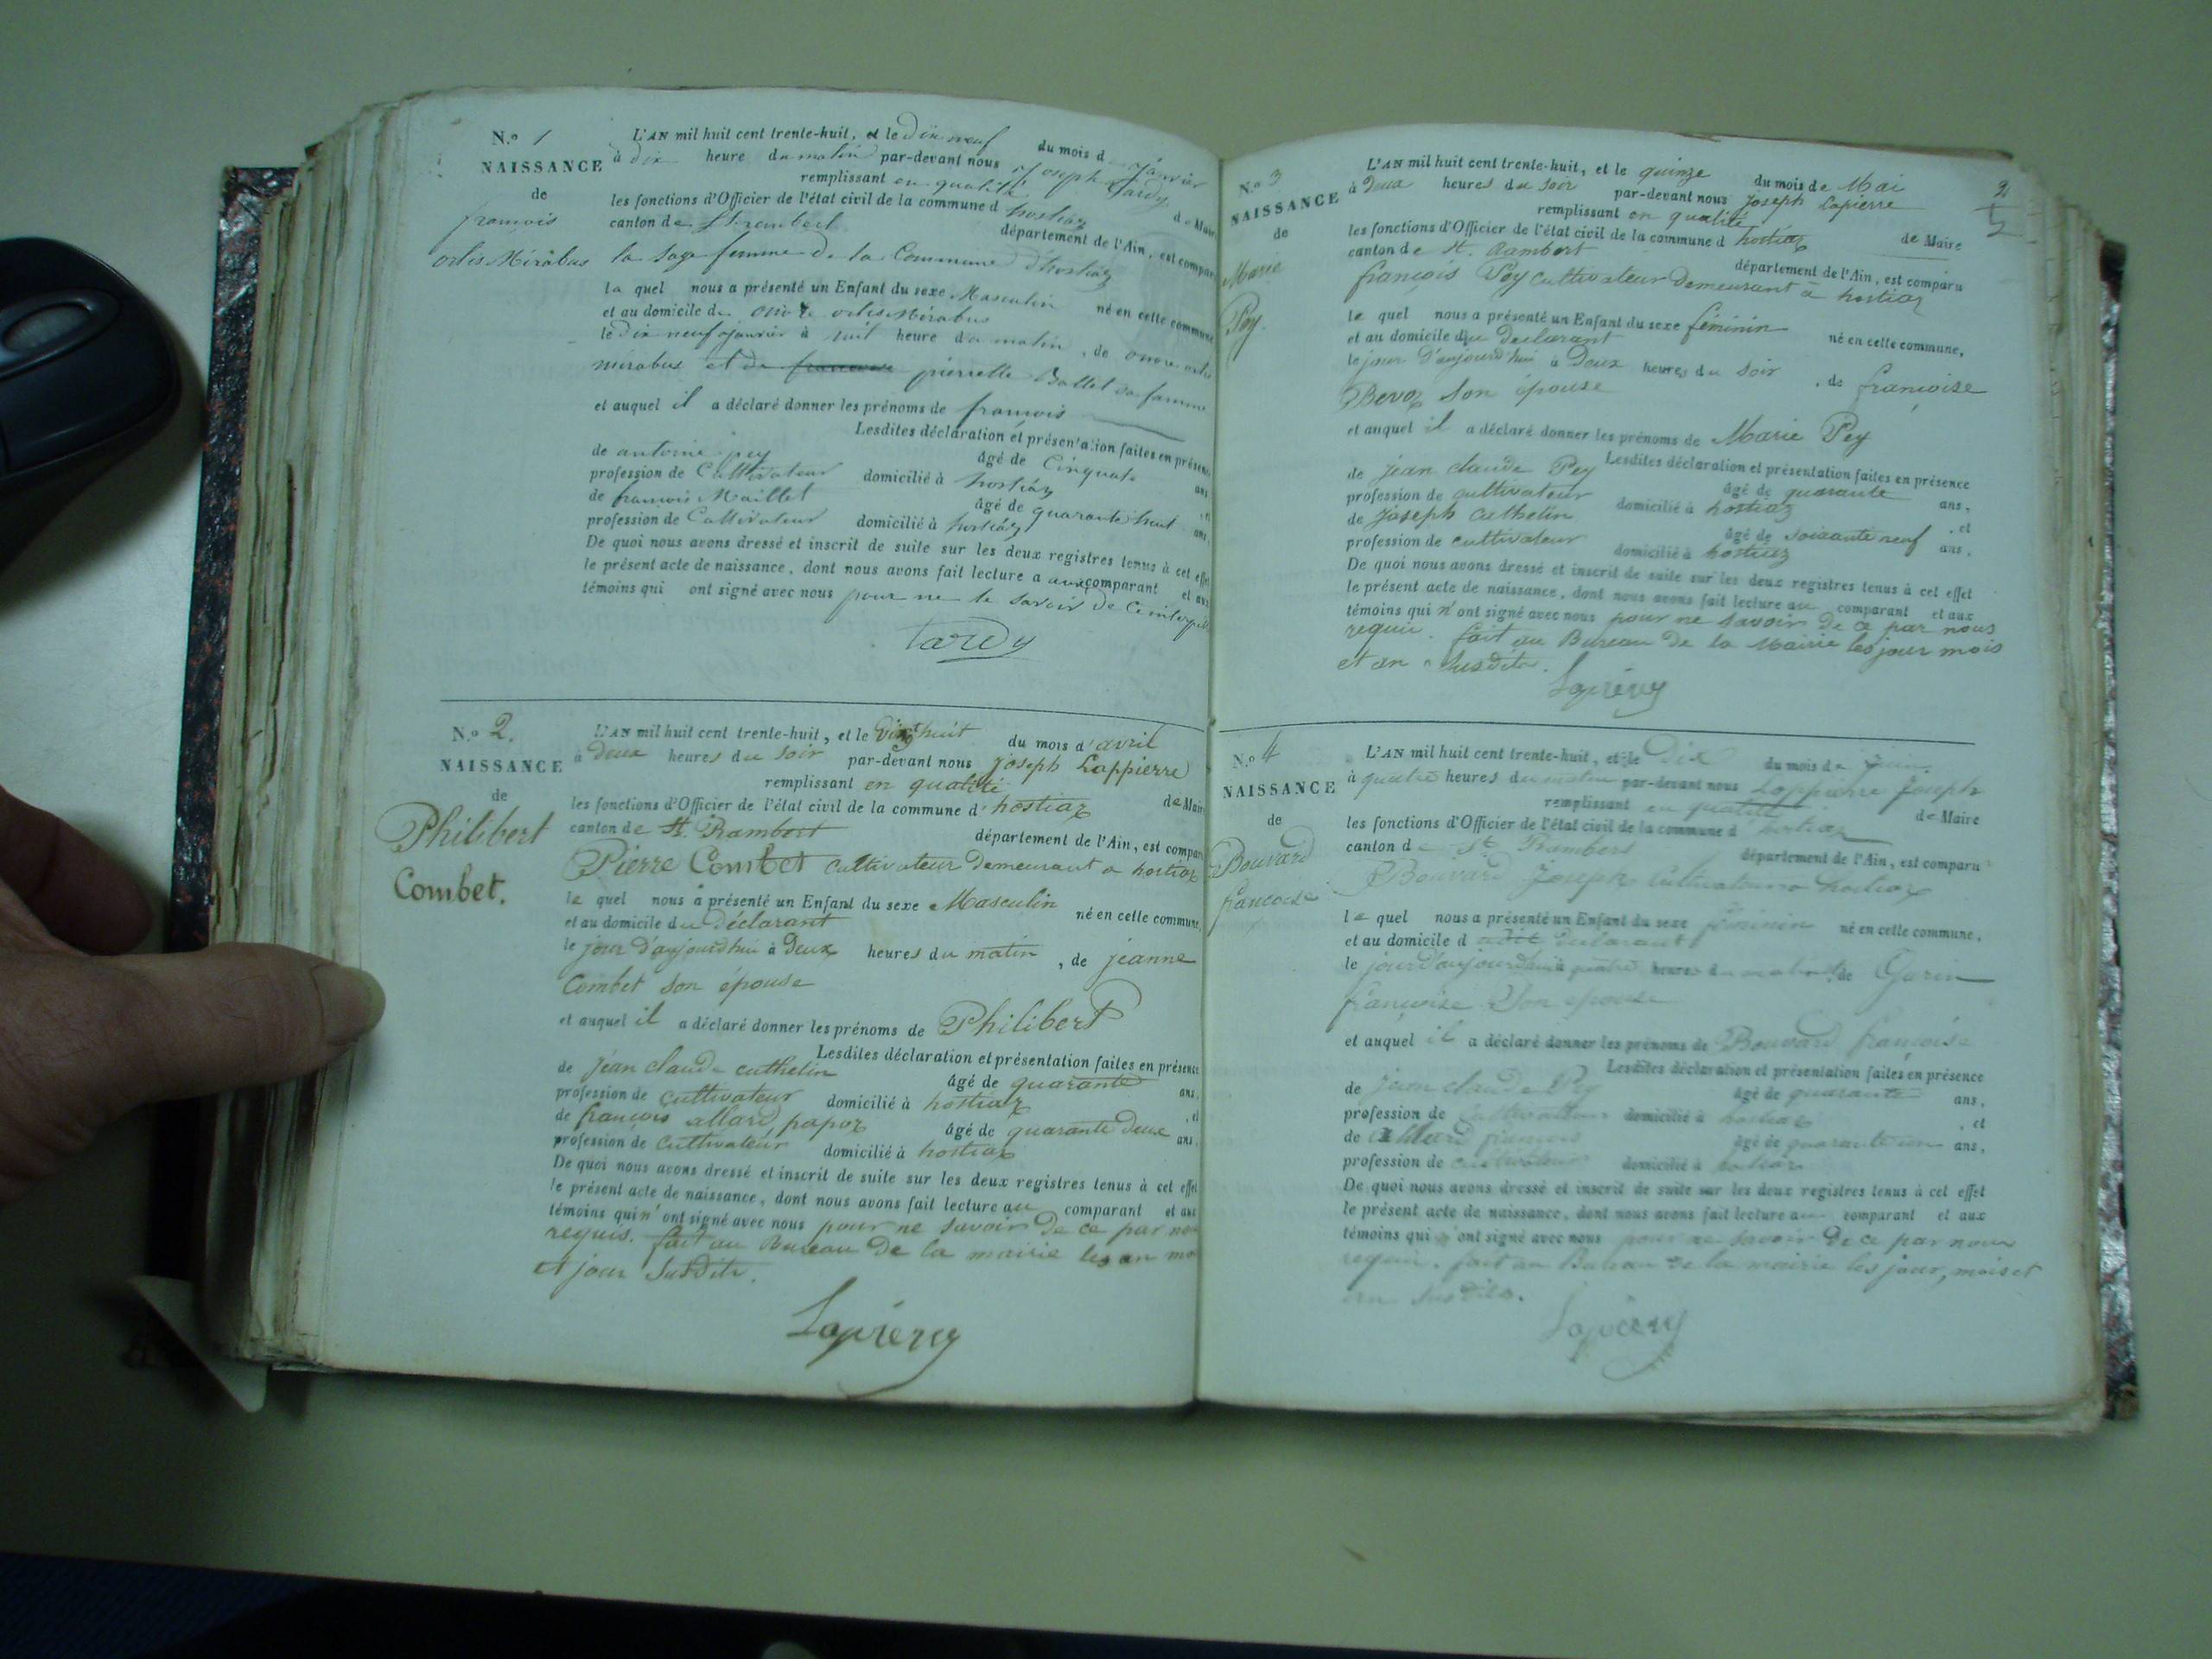 N.o 1
NAISSANCE
de
francois
orlis Mirabus
L'AN mil huit cent trente-huit, et le Dix neuf du mois de Janvier
à dix heure du matin par-devant nous Joseph Tardy
remplissant en qualité de Maire
les fonctions d'Officier de l'état civil de la commune d hostiaz
canton de St. rambert département de l'Ain, est compar
la Sage femme de la Commune d'hostiaz
la quel nous a présenté un Enfant du sexe Masculin né en cette commune
et au domicile du
le Dix neuf Janvier à huit heure du matin, de
mirabus et de pierrette Ballet sa famme
et auquel il a déclaré donner les prénoms de francois
Lesdites déclaration et présentation faites en présence
de antoine pey âgé de Cinquate ans
profession de Cultivateur domicilié à hostiaz , et
de francois Maillet âgé de quarante huit ans,
profession de Cultivateur domicilié à hostiaz
De quoi nous avons dressé et inscrit de suite sur les deux registres tenus à cet effet
le présent acte de naissance, dont nous avons fait lecture a aux comparant et aux
témoins qui ont signé avec nous pour ne le savoir de
tardy
N.o 2.
NAISSANCE
de
Philibert
Combet.
L'AN mil huit cent trente-huit, et le Vingt huit du mois d'avril
à Deux heures du Soir par-devant nous joseph Lappierre
remplissant en qualité de Maire
les fonctions d'Officier de l'état civil de la commune d'hostiaz
canton de St. Rambert département de l'Ain, est compar
Pierre Combet cultivateur demeurant a hostiaz
le quel nous a présenté un Enfant du sexe Masculin né en cette commune,
et au domicile du Déclarant
le jour d'aujourdhui à Deux heures du matin, de jeanne
Combet son épouse
et auquel il a déclaré donner les prénoms de Philibert
Lesdites déclaration et présentation faites en présence
de Jean claude cuthelin âgé de quarante ans,
profession de cultivateur domicilié à hostiaz , et
de françois allard, papoz âgé de quarante deux ans,
profession de cultivateur domicilié à hostiaz
De quoi nous avons dressé et inscrit de suite sur les deux registres tenus à cet effet
le présent acte de naissance, dont nous avons fait lecture au comparant et aux
témoins qui n'ont signé avec nous pour ne savoir de ce par nou
requis. fait au Bureau de la mairie les an mo
et jour Susdits.
Lapierre
N.o 3
NAISSANCE
de
Marie
Pey.
L'AN mil huit cent trente-huit, et le quinze du mois de Mai
à Deux heures du Soir par-devant nous joseph Lapierre
remplissant en qualité de Maire
les fonctions d'Officier de l'état civil de la commune d hostiaz
canton de St. Rambert département de l'Ain, est comparu
françois Pey cultivateur Demeurant a hostiaz
le quel nous a présenté un Enfant du sexe féminin né en cette commune,
et au domicile du Declarant
le jour D'aujourd'hui à Deux heures du Soir, de françoise
Bevoz Son épouse
et auquel il a déclaré donner les prénoms de Marie Pey
Lesdites déclaration et présentation faites en présence
de jean claude Pey âgé de quarante ans,
profession de cultivateur domicilié à hostiaz , et
de Joseph Cuthelin âgé de Soixante neuf ans,
profession de cultivateur domicilié à hostiaz
De quoi nous avons dressé et inscrit de suite sur les deux registres tenus à cet effet
le présent acte de naissance, dont nous avons fait lecture au comparant et aux
témoins qui n'ont signé avec nous pour ne Savoir De ce par nous
requis. fait au Bureau De la Mairie les jour mois
et an Susdits.
Lapierre
N.o 4
NAISSANCE
de
Bouvard
francoise
L'AN mil huit cent trente-huit, et le Dix du mois de Juin
à quatre heures du matin par-devant nous Lappierre Joseph
remplissant en qualité de Maire
les fonctions d'Officier de l'état civil de la commune d hostiaz
canton de St. Rambert département de l'Ain, est comparu
Bouvard Joseph Cultivateur a hostiaz
le quel nous a présenté un Enfant du sexe féminin né en cette commune,
et au domicile d udit Declarant
le jour d'aujourdhui à quatre heures du matin, de Gorin
françoise Son epouse
et auquel il a déclaré donner les prénoms de Bouvard françoise
Lesdites déclaration et présentation faites en présence
de jean claude Pey âgé de quarante ans,
profession de Cultivateur domicilié à hostiaz , et
de allard françois âgé de quarante un ans,
profession de cultivateur domicilié à hostiaz
De quoi nous avons dressé et inscrit de suite sur les deux registres tenus à cet effet
le présent acte de naissance, dont nous avons fait lecture au comparant et aux
témoins qui n'ont signé avec nous pour ne Savoir De ce par nous
requis. fait au Bureau de la mairie les jour, mois et
an Susdits.
Lapierre